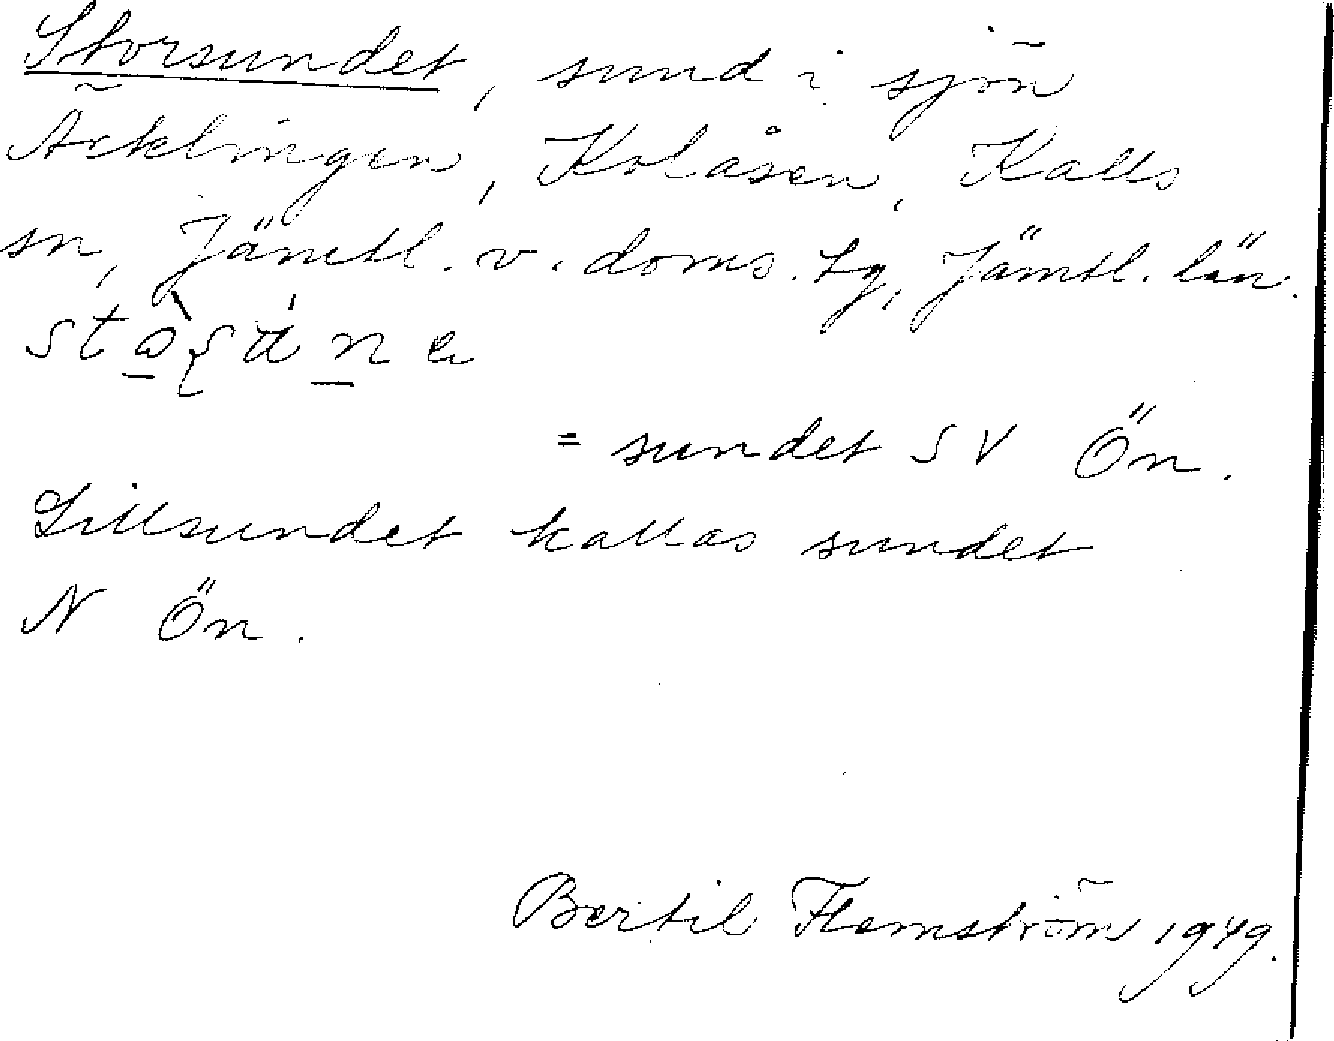 Storsundet, sund i sjön
Äcklingen, Kolåsen, Kalls
sn, Jämtl. v. doms. tg, Jämtl. län.
= sundet SV Ön.
Lillsundet kallas sundet
N Ön.
Bertil Flemström 1949.